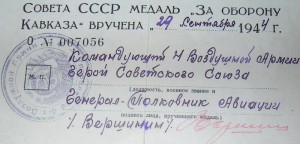 СОВЕТА СССР МЕДАЛЬ "ЗА ОБОРОНУ
КАВКАЗА" ВРУЧЕНА „29 сентября 1944
О № 007056
Командующий 4 Воздушной Армии
Герой Советского Союза
(должность, воинское звание и
М. П.
Генерал-Полковник Авиации
подпись лица, вручившего медаль)
/Вершинин/